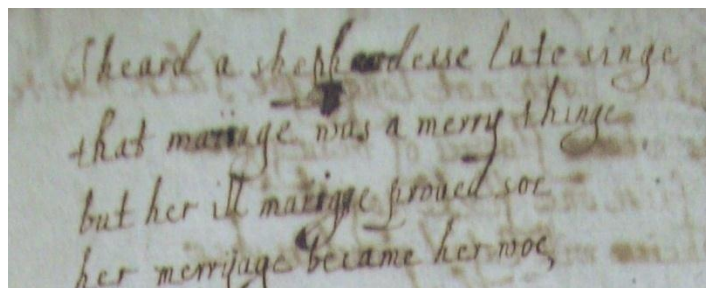 I heard a shephardesse late singe
that mariage was a merry thinge
but her ill mariage proued soe
her merriage became her woe,